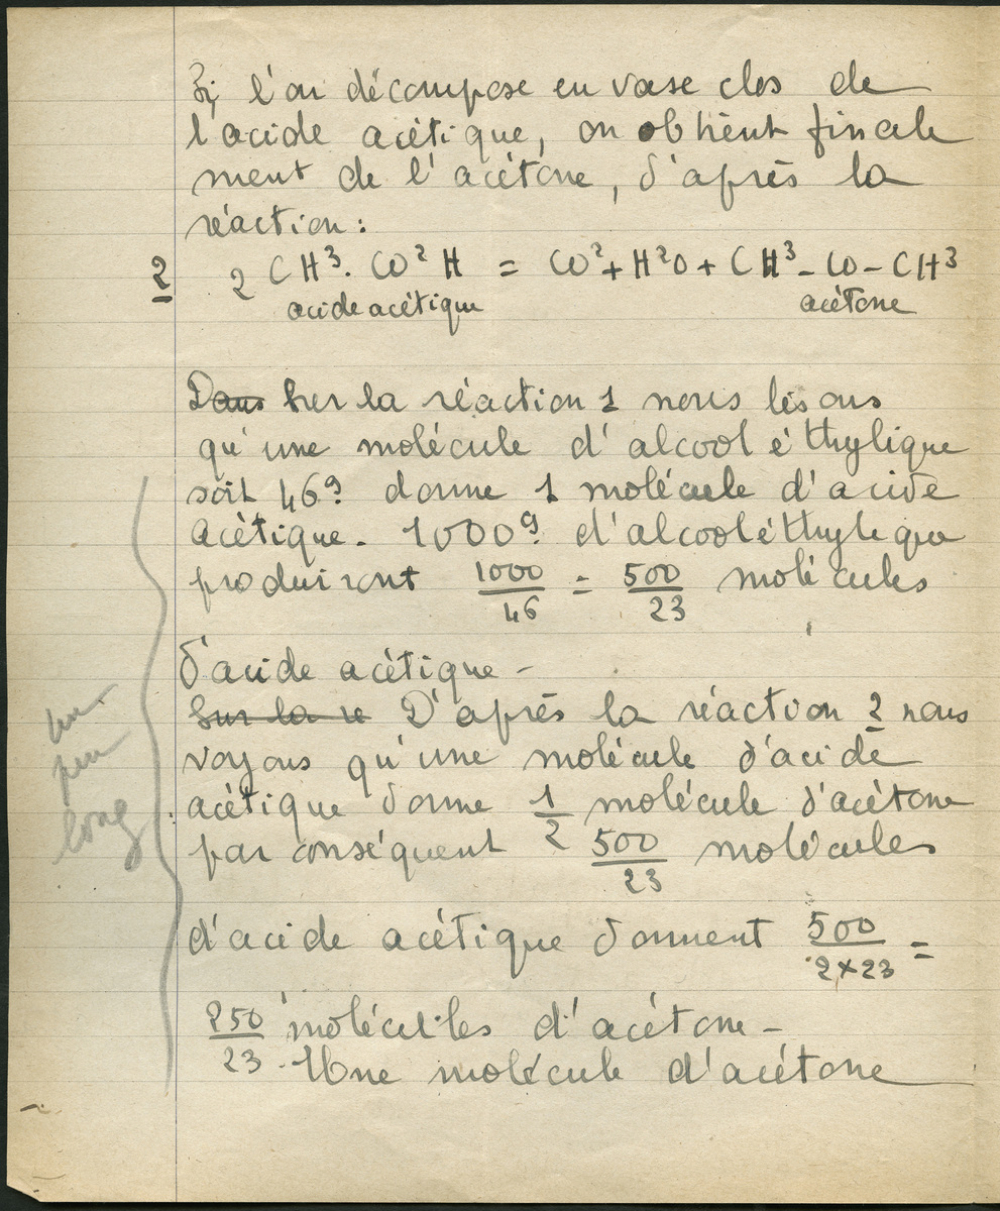 Si l'on décompose en vase clos de
l'acide acétique, on obtient finale
ment de l'acétone, d'après la
réaction :
2 2 CH³. CO² H = CO² + H²O + CH³ - CO - CH³
acide acétique acétone
Dans Sur la réaction 1 nous lisons
qu'une molécule d'alcool éthylique
soit 46g. donne 1 molécule d'acide
acétique. 1000g. d'alcool éthylique
produiront 1000/46 = 500/23 molécules
d'acide acétique -
Sur la re D'après la réaction 2 nous
voyons qu'une molécule d'acide
acétique donne 1/2 molécule d'acétone
par conséquent 500/23 molécules
d'acide acétique donnent 500/2x23 =
250/23 molécules d'acétone -
Une molécule d'acétone
un
peu
long